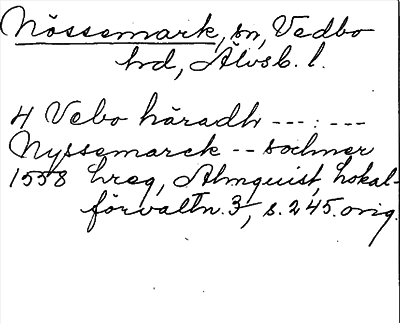 Nössemark, sn, Vedbo
hd, Älvsb. l.
4 Vebo häradh --- : ---
Nyssemarck -- sochner
1558 hreg, Almquist, Lokal-
förvaltn. 3, s. 245. orig.